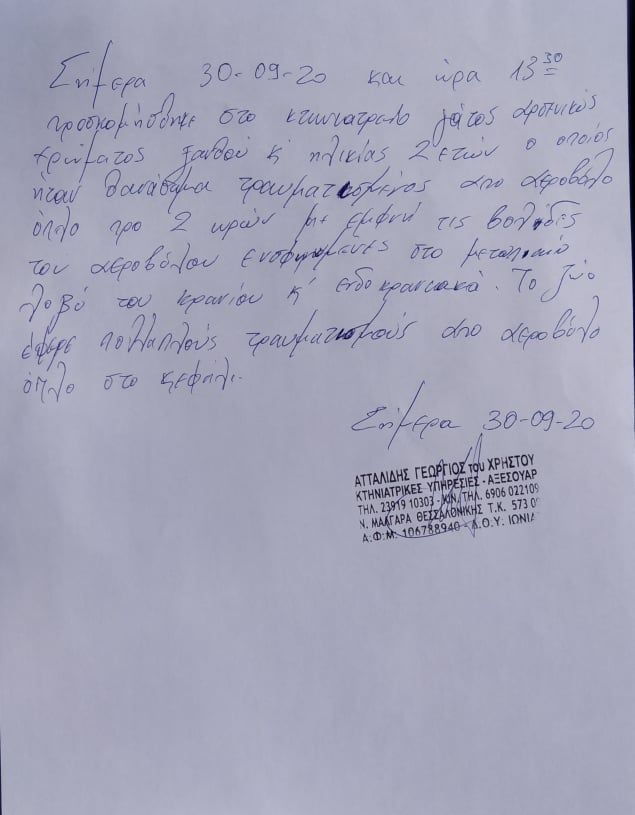 Σήμερα 30-09-20 και ώρα 13 30
προσκομήσθηκε στο κτηνιατρείο γάτος αρσενικός
χρώματος ξανθού κ' ηλικίας 2 ετών ο οποίος
ήταν θανάσιμα τραυματισμένος από αεροβόλο
όπλο προ 2 ωρών με εμφανή τις βολίδες
του αεροβόλου ενσφηνωμένες στο μετωπιαίο
λοβό του κρανίου κ' ενδοκρανιακά. Το ζώο
έφερε πολλαπλούς τραυματισμούς από αεροβόλο
όπλο στο κεφάλι.
Σήμερα 30-09-20
ΑΤΤΑΛΙΔΗΣ ΓΕΩΡΓΙΟΣ του ΧΡΗΣΤΟΥ
ΚΤΗΝΙΑΤΡΙΚΕΣ ΥΠΗΡΕΣΙΕΣ - ΑΞΕΣΟΥΑΡ
ΤΗΛ. 23919 10303 - ΚΙΝ. ΤΗΛ. 6906 022109
Ν. ΜΑΛΓΑΡΑ ΘΕΣΣΑΛΟΝΙΚΗΣ Τ.Κ. 573 0
Α.Φ.Μ. 106788940 - Δ.Ο.Υ. ΙΩΝΙΑ